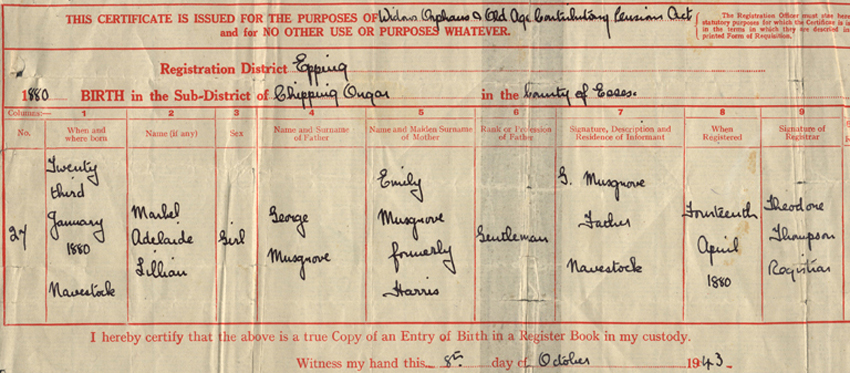 THIS CERTIFICATE IS ISSUED FOR THE PURPOSES OF Widows Orphans & Old Age Contributory Pensions Act
and for NO OTHER USE OR PURPOSES WHATEVER.
The Registration Officer must state here
statutory purposes for which the Certificate is
in the terms in which they are described in
printed Form of Requisition.
Registration District Epping
1880 BIRTH in the Sub-District of Chipping Ongar in the County of Essex.
Columns:— 1 2 3 4 5 6 7 8 9
No. When and where born Name (if any) Sex Name and Surname of Father Name and Maiden Surname of Mother Rank or Profession of Father Signature, Description and Residence of Informant When Registered Signature of Registrar
27
Twenty
third
January
1880
Navestock
Adelaide
Lillian
Girl
George
Musgrove
Emily
Musgrove
formerly
Harris
Gentleman
G. Musgrove
Father
Navestock
Fourteenth
April
1880
Theodore
Thompson
Registrar
I hereby certify that the above is a true Copy of an Entry of Birth in a Register Book in my custody.
Witness my hand this 8th day of October 1943.